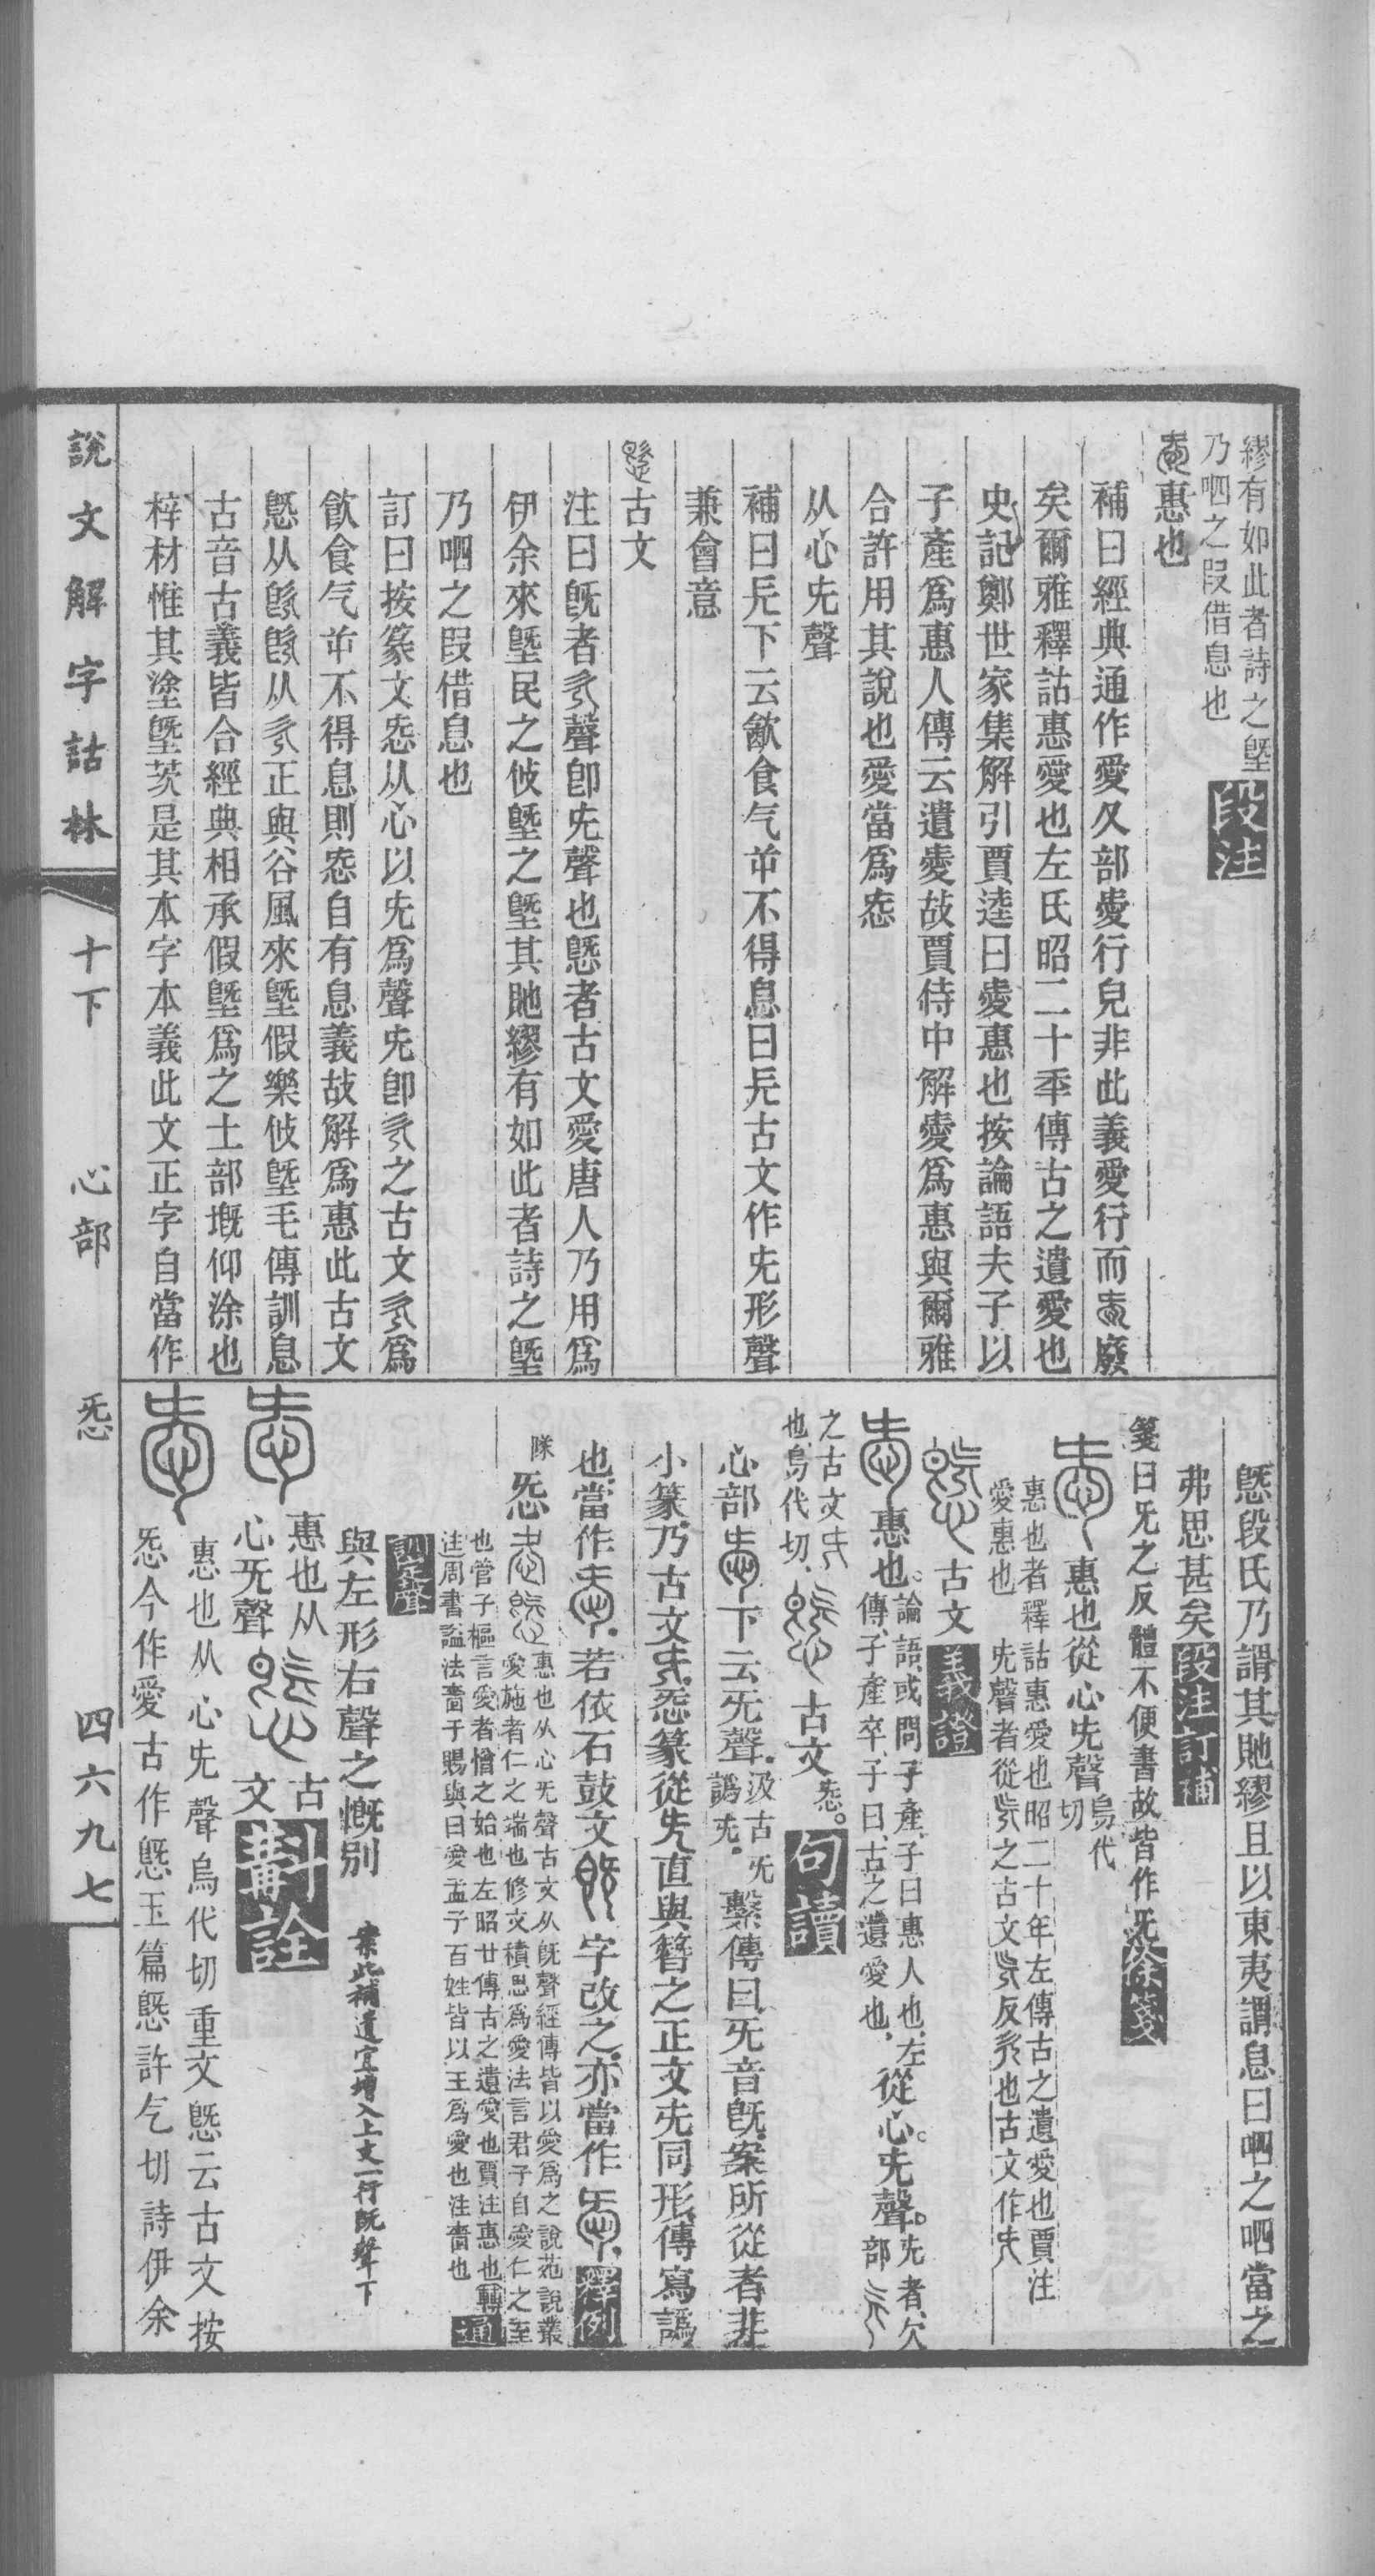 繆有如此者詩之墍
乃呬之叚借息也
段注
惠也
補曰經典通作愛夊部㤅行皃非此義愛行而㤅廢
矣爾雅釋詁惠愛也左氏昭二十年傳古之遺愛也
史記鄭世家集解引賈逵曰愛惠也按論語夫子以
子產爲惠人傳云遺愛故賈侍中解愛爲惠與爾雅
合許用其說也愛當爲㤅
从心旡聲
補曰旡下云歠食气屰不得息曰旡古文作旡形聲
兼會意
古文
注曰旣者旡聲卽旡聲也㤥者古文愛唐人乃用爲
伊余來墍民之攸墍之墍其訑繆有如此者詩之墍
乃呬之叚借息也
訂曰按篆文㤅从心以旡爲聲旡卽旡之古文旡爲
飮食气屰不得息則㤅自有息義故解爲惠此古文
㤥从旣旣从旡正與谷風來墍假樂攸墍毛傳訓息
古音古義皆合經典相承假墍爲之土部墍仰涂也
梓材惟其塗墍茨是其本字本義此文正字自當作
㤥段氏乃謂其訑繆且以東夷謂息曰呬之呬當之
弗思甚矣
段注訂補
箋曰旡之反體不便書故皆作旡
徐箋
惠也從心旡聲烏代切
惠也者釋詁惠愛也昭二十年左傳古之遺愛也賈注
愛惠也 旡聲者從旡之古文旡反旡也古文作旡
古文
義證
惠也。論語、或問子產、子曰、惠人也、左
傳、子產卒、子曰、古之遺愛也、從心。旡聲。旡者、欠部旡
之古文旡
也、烏代切、古文㤅。
句讀
心部㤅下云旡聲。汲古旡譌旡。繫傳曰、旡音旣、案所從者、非
小篆、乃古文旡、㤅篆從旡、直與簪之正文旡同形、傳寫譌
也、當作㤅、若依石鼓文旣字改之、亦當作㤅、
釋例
隊
㤅惠也从心旡聲古文从旣聲經傳皆以愛爲之說苑說叢
愛施者仁之端也修文積思爲愛法言君子自愛仁之至
也管子樞言愛者憎之始也左昭廿傳古之遺愛也賈注惠也轉
注周書諡法嗇于賜與曰愛孟子百姓皆以王爲愛也注嗇也
通訓定聲
與左形右聲之慨別 案此補遺宜增入上文一行旣聲下
惠也从
心旡聲 古文
斠詮
惠也从心旡聲烏代切重文㤥云古文按
㤅今作愛古作㤥玉篇㤥許气切詩伊余
說文解字詁林
十下
心部
㤅
四六九七